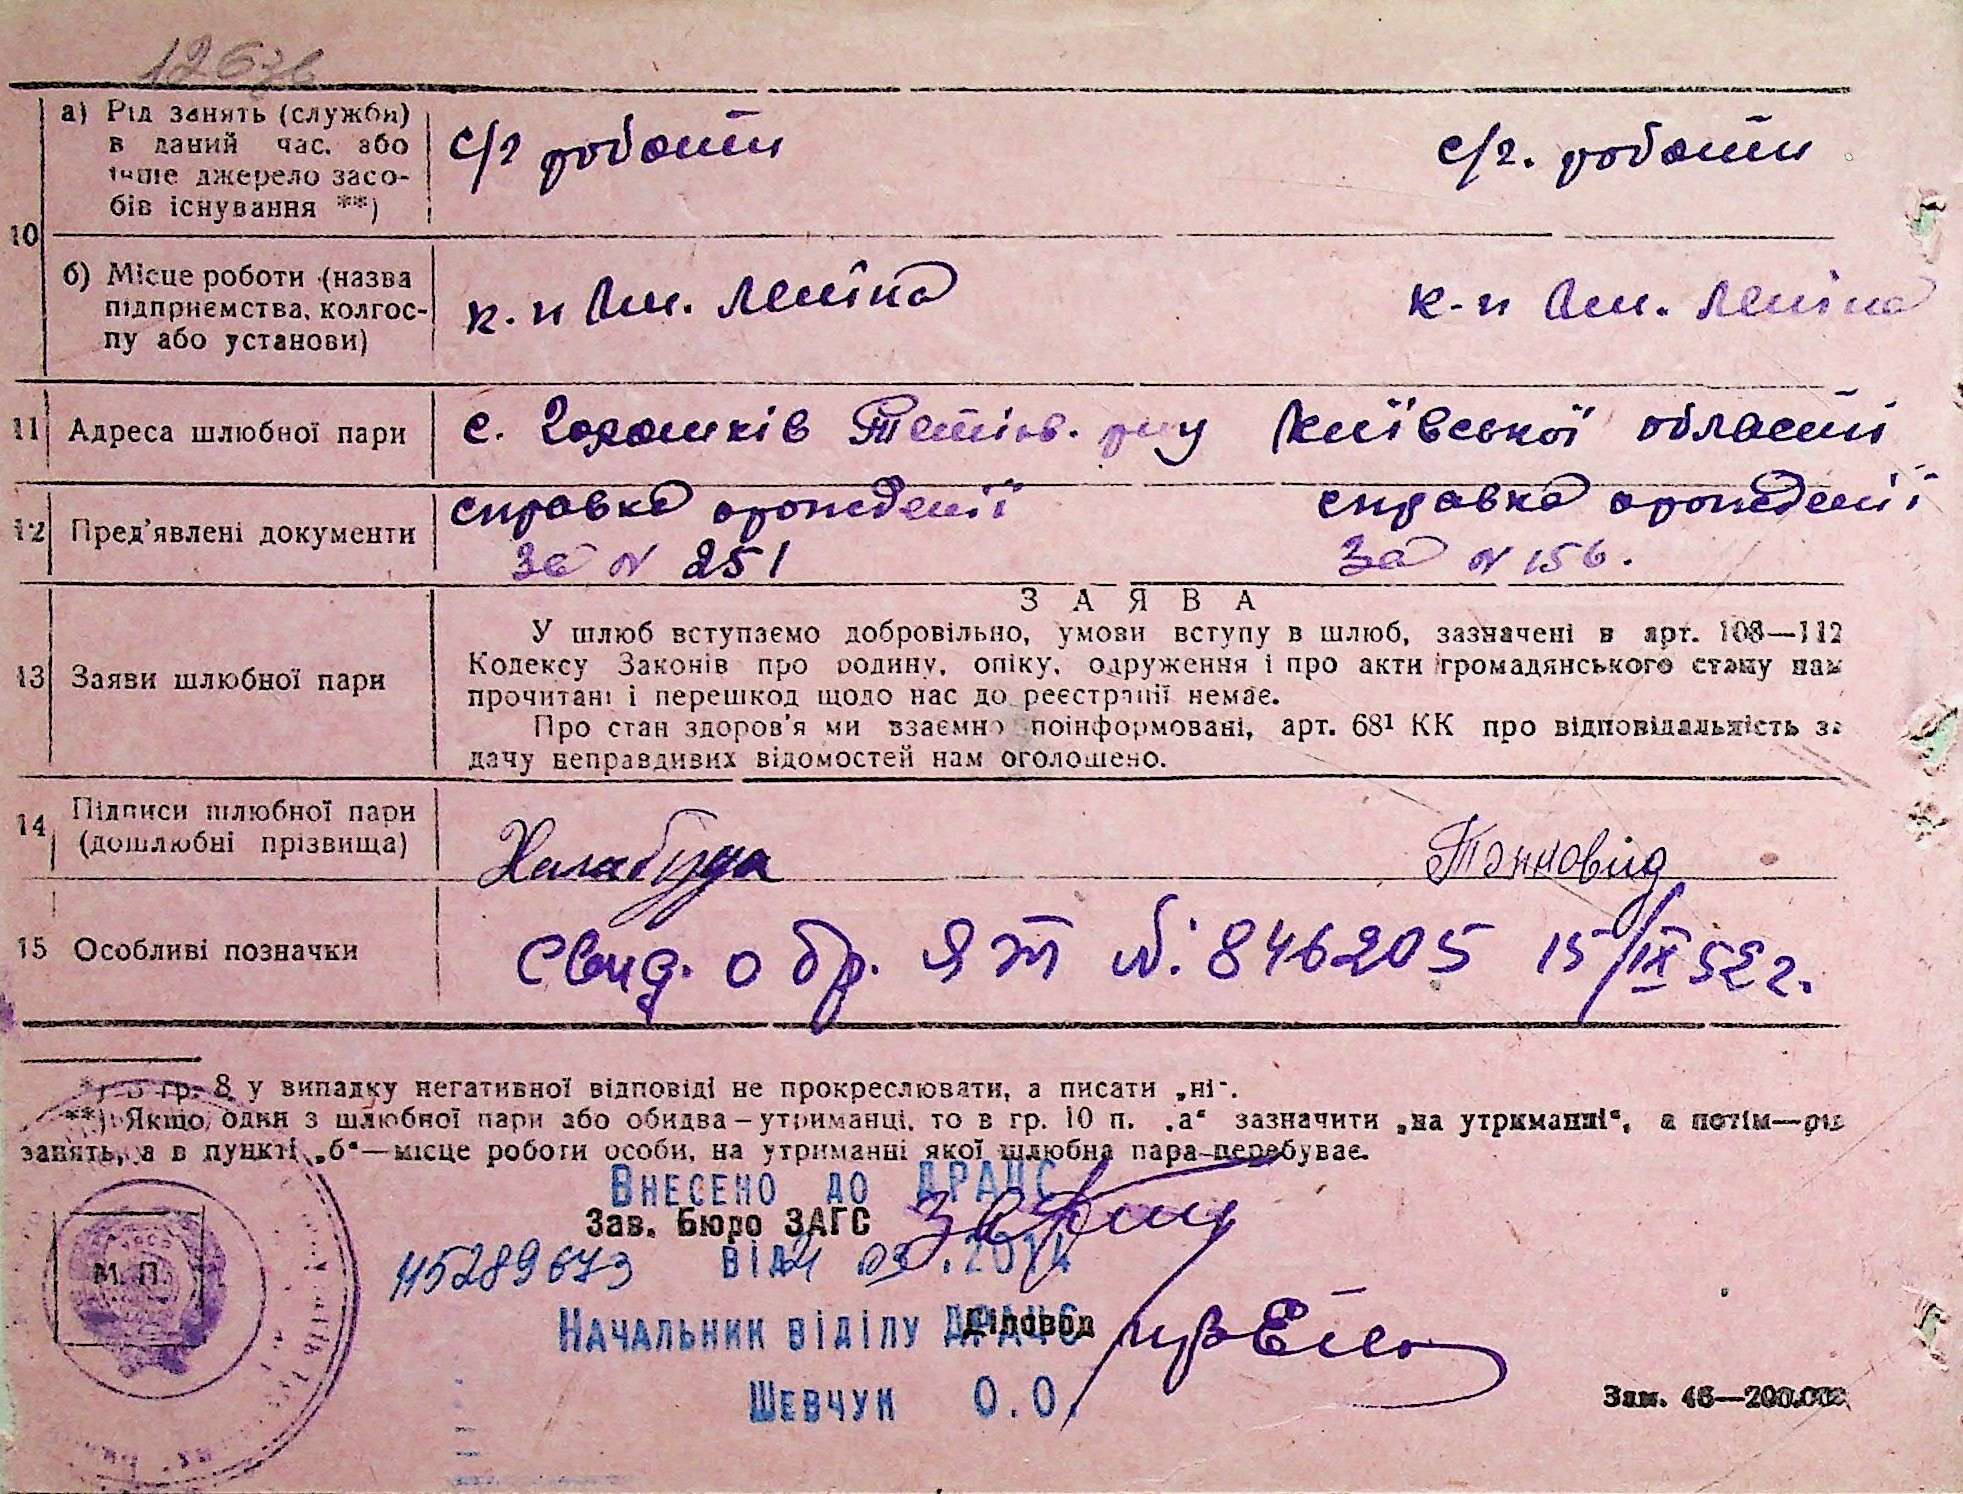 а) Рід занять (служби) в даний час, або інше джерело засобів існування **)
с/г роботи
с/г. роботи
10
б) Місце роботи (назва підприємства, колгоспу або установи)
к-п Ім. Леніна
к-п Ім. Леніна
11 Адреса шлюбної пари
с. Тетіїв. р-ну Київської області
12 Пред'явлені документи
справка орождении
За N 251
справка орождении
За N 156.
З А Я В А
13 Заяви шлюбної пари
У шлюб вступаємо добровільно, умови вступу в шлюб, зазначені в арт. 108—112
Кодексу Законів про родину, опіку, одруження і про акти громадянського стану нам
прочитані і перешкод щодо нас до реєстрації немає.
Про стан здоров'я ми взаємно поінформовані, арт. 68¹ КК про відповідальність за
дачу неправдивих відомостей нам оголошено.
14 Підписи шлюбної пари (дошлюбні прізвища)
Халабуда
15 Особливі позначки
Свид. о бр. ЯТ №: 846205 15/IX 52 г.
*) В гр. 8 у випадку негативної відповіді не прокреслювати, а писати „ні“.
**) Якщо один з шлюбної пари або обидва—утриманці, то в гр. 10 п. „а“ зазначити „на утриманні“, а потім—рід
занять, а в пункті „б“—місце роботи особи, на утриманні якої шлюбна пара перебуває.
Внесено до ДРАЦС
Зав. Бюро ЗАГС
115289673 від 21 03.2014
Начальник відділу ДРАЦС
Діловод
М. П.
Шевчук О.О.
Зам. 46—200.000